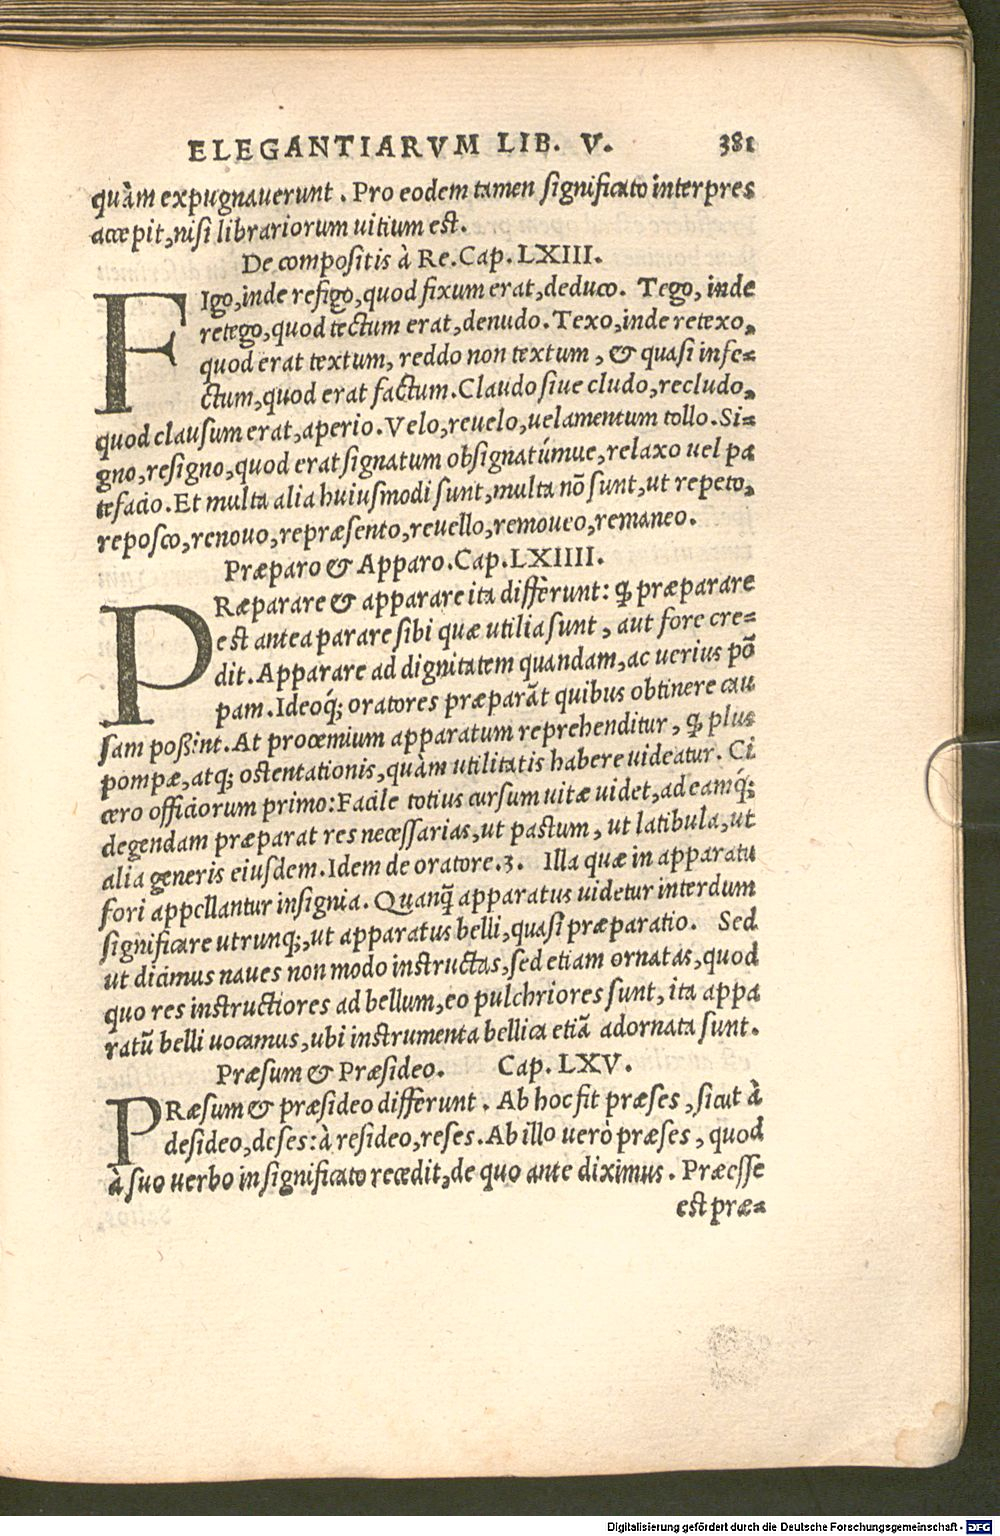 ELEGANTIARVM LIB. V. 381
quàm expugnauerunt. Pro eodem tamen significato interpres
accepit, nisi librariorum uitium est.
De compositis à Re. Cap. LXIII.
FIgo, inde refigo, quod fixum erat, deduco. Tego, inde
retego, quod tectum erat, denudo. Texo, inde retexo,
quod erat textum, reddo non textum, & quasi infe-
ctum, quod erat factum. Claudo siue cludo, recludo,
quod clausum erat, aperio. Velo, reuelo, uelamentum tollo. Si-
gno, resigno, quod erat signatum obsignatúmue, relaxo uel pa
tefacio. Et multa alia huiusmodi sunt, multa nõ sunt, ut repeto,
reposco, renouo, repræsento, reuello, remoueo, remaneo.
Præparo & Apparo. Cap. LXIIII.
PRæparare & apparare ita differunt: ꝙ præparare
est antea parare sibi quæ utilia sunt, aut fore cre-
dit. Apparare ad dignitatem quandam, ac uerius põ
pam. Ideoq́; oratores præparãt quibus obtinere cau
sam poßint. At proœmium apparatum reprehenditur, ꝙ plus
pompæ, atq; ostentationis, quàm utilitatis habere uideatur. Ci
cero officiorum primo: Facile totius cursum uitæ uidet, ad eamq́;
degendam præparat res necessarias, ut pastum, ut latibula, ut
alia generis eiusdem. Idem de oratore. 3. Illa quæ in apparatu
fori appellantur insignia. Quanq̃ apparatus uidetur interdum
significare utrunq;, ut apparatus belli, quasi præparatio. Sed
ut dicimus naues non modo instructas, sed etiam ornatas, quod
quo res instructiores ad bellum, eo pulchriores sunt, ita appa
ratũ belli uocamus, ubi instrumenta bellica etiã adornata sunt.
Præsum & Præsideo. Cap. LXV.
PRæsum & præsideo differunt. Ab hoc fit præses, sicut à
desideo, deses: à resideo, reses. Ab illo uerò præses, quod
à suo uerbo in significato recedit, de quo ante diximus. Præesse
est præ-
Digitalisierung gefördert durch die Deutsche Forschungsgemeinschaft - DFG